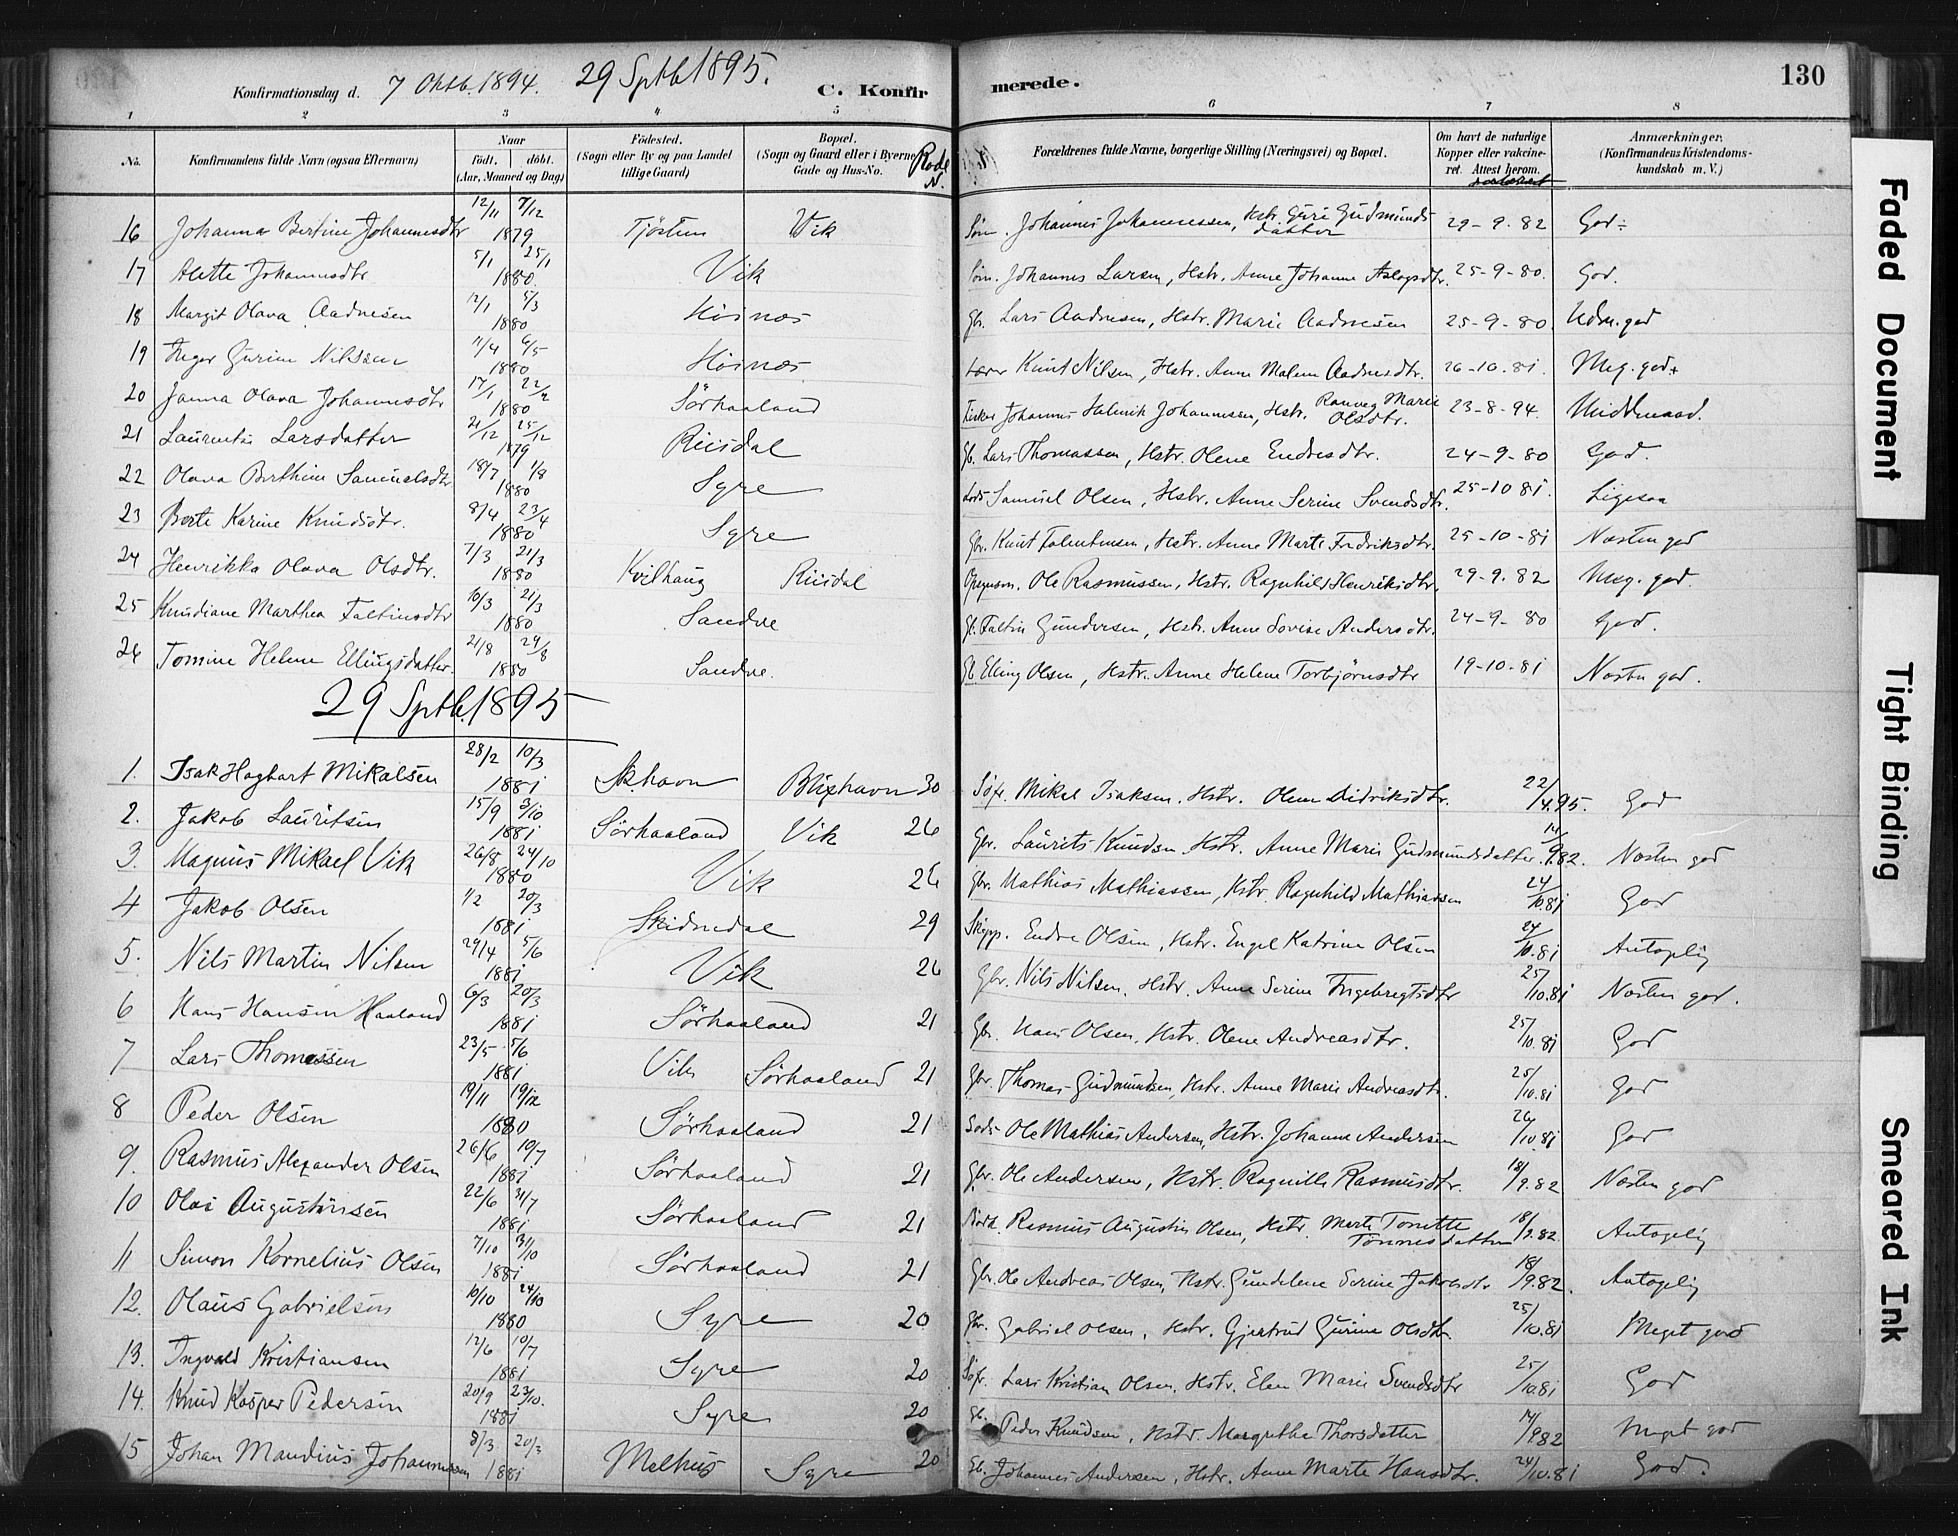 Konfirmationsdag d. 7 Oktb. 1894. 29 Sptb 1895. C. Konfir merede. 130
1 2 3 4 5 6 7 8
No. Konfirmandens fulde Navn (ogsaa Efternavn) Naar født. døbt. (Aar, Maaned og Dag) Fødested. (Sogn eller By og paa Landet tillige Gaard) Bopæl. (Sogn og Gaard eller i Byerne Gade og Hus-No. Rode N. Forældrenes fulde Navne, borgerlige Stilling (Næringsvei) og Bopæl. Om havt de naturlige Kopper eller vakcineret. Attest herom. Anmærkninger, (Konfirmandens Kristendomskundskab m. V.)
16 Johanna Bertine Johannesdtr 12/11 7/12 1879 Tjösten Vik Johannes Johannessen, Hstr. Guri Gudmundsdatter 29-9-82 God
17 Alette Johannesdtr 5/1 25/1 1880. Vik Johannes Larsen, Hstr. Anne Johanne Aslagsdtr. 25-9-80. God.
18 Margit Olava Aadnesen 12/1 5/3 1880 Höinæs Gb. Lars Aadnesen, Hstr. Marie Aadnesen 25-9-80. Udm. god
19 Inger Gurine Nilssen 11/4 6/5 1880 Höinæs Knut Nilsen, Hstr. Anne Malene Aadnesdtr. 26-10.81. Meg. god
20 Janna Olava Johannesdtr 17/1 22/2 1880 Sörhaaland Johannes Helmik Johannessen, Hstr. Ranveg Marie Olsdtr. 23-8-94. Middemaad.
21 Laurentse Larsdatter 21/12 25/12 1879 Riisdal Gb. Lars Thomassen, Hstr. Olene Endresdtr. 24-9-80 God.
22 Olava Berthine Samuelsdtr 18/7 1/8 1880 Syre Samuel Olsen, Hstr. Anne Serine Svendsdtr. 25-10 81. Ligesaa
23 Berte Karine Knudsdtr. 8/4 23/4 1880 Syre Gbr. Knut Falentinsen, Hstr. Anne Marte Fredriksdtr. 25-10-81 Næsten god
24 Henrikka Olava Olsdtr. 7/3 21/3 1880 Kvilhaug Riisdal Ole Rasmussen, Hstr. Ragnhild Henriksdtr. 29-9.82 Meg. god.
25 Knudiane Marthea Faltinsdtr 10/3 21/3 1880 Sandve Gb. Faltin Gundersen, Hstr. Anne Lovise Andersdtr. 24-9-80 God.
26 Tomine Helene Ellingsdatter. 21/8 29/8 1880 Sandve. Gb. Elling Olsen, Hstr. Anne Helene Torbjörnsdtr 19-10-81 Næsten god.
29 Sptb. 1895
1. Isak Hagbart Mikalsen 28/2 10/3 1881 Blixhavn 30 Mikal Isaksen. Hstr. Olene Didriksdtr. 22/4.95. God
2. Jakob Lauritsen 15/9 3/10 1881 Sörhaaland Vik 26 Gbr. Laurits Knudsen Hstr. Anne Marie Gudmundsdatter. 14/9.82. Næsten god
3. Magnus Mikael Vik 26/8 24/10 1880 Vik 26 Gbr. Mathias Mathiassen, Hstr. Ragnhild Mathiassen 24/10 81 God
4 Jakob Olsen 1/2 20/3 1881 Skidnedal 29 Skipp. Endre Olsen, Hstr. Engel Katrine Olsen 24/10.81 Antagelig
5. Nils Martin Nilsen 29/4 5/6 1881 Vik 26 Gbr. Nils Nilsen. Hstr. Anne Serine Ingebregtsdtr 25/10.81 Næsten god.
6 Hans Hansen Haaland 6/3 20/3 1881 Sörhaaland 21 Gbr. Hans Olsen. Hstr. Olene Andreasdtr. 25/10.81 God
7 Lars Thomassen 23/5 5/6 1881 Vik Sörhaaland 21 Gbr. Thomas Gudmundsen, Hstr. Anne Marie Andreasdtr. 25/10.81 God
8 Peder Olsen 19/11 19/12 1880 Sörhaaland 21 Ole Mathias Andersen, Hstr. Johanne Andersen 26/10.81 God
9. Rasmus Alexander Olsen 26/6 10/7 1881 Sörhaaland 21 Gbr. Ole Andersen, Hstr. Ragnille Rasmusdtr. 18/9.82 Næsten god
10 Olai Augustinsen 22/6 31/7 1881 Sörhaaland 21 Rasmus Augustin Olsen, Hstr. Marte Tonette Tönnesdatter 18/9.82. Antagelig
11 Simon Kornelius Olsen 7/10 31/10 1881 Sörhaaland 21 Gbr. Ole Andreas Olsen, Hstr. Gundelene Serine Jakobsdtr 18/9.82. Antagelig
12. Olaus Gabrielsen 10/10 24/10 1880 Syre 20 Gbr. Gabriel Olsen, Hstr. Gjertrud Gurine Olsdtr. 25/10.81 Meget god
13. Ingvald Kristiansen 12/6 10/7 1881 Syre 20 Lars Kristian Olsen. Hstr. Elen Marie Svendsdtr 25/10.81 God
14. Knud Kasper Pedersen 20/9 23/10. 1881 Syre 20 Gb. Peder Knudsen, Hstr. Margrethe Thorsdatter 14/9.82 Meget god
15 Johan Mandius Johannessen 8/3 20/3 1881 Melhus Syre 20 Gb. Johannes Andersen, Hstr. Anne Marte Hansdtr. 24/10.81 God.
Faded Document
Tight Binding
Smeared Ink